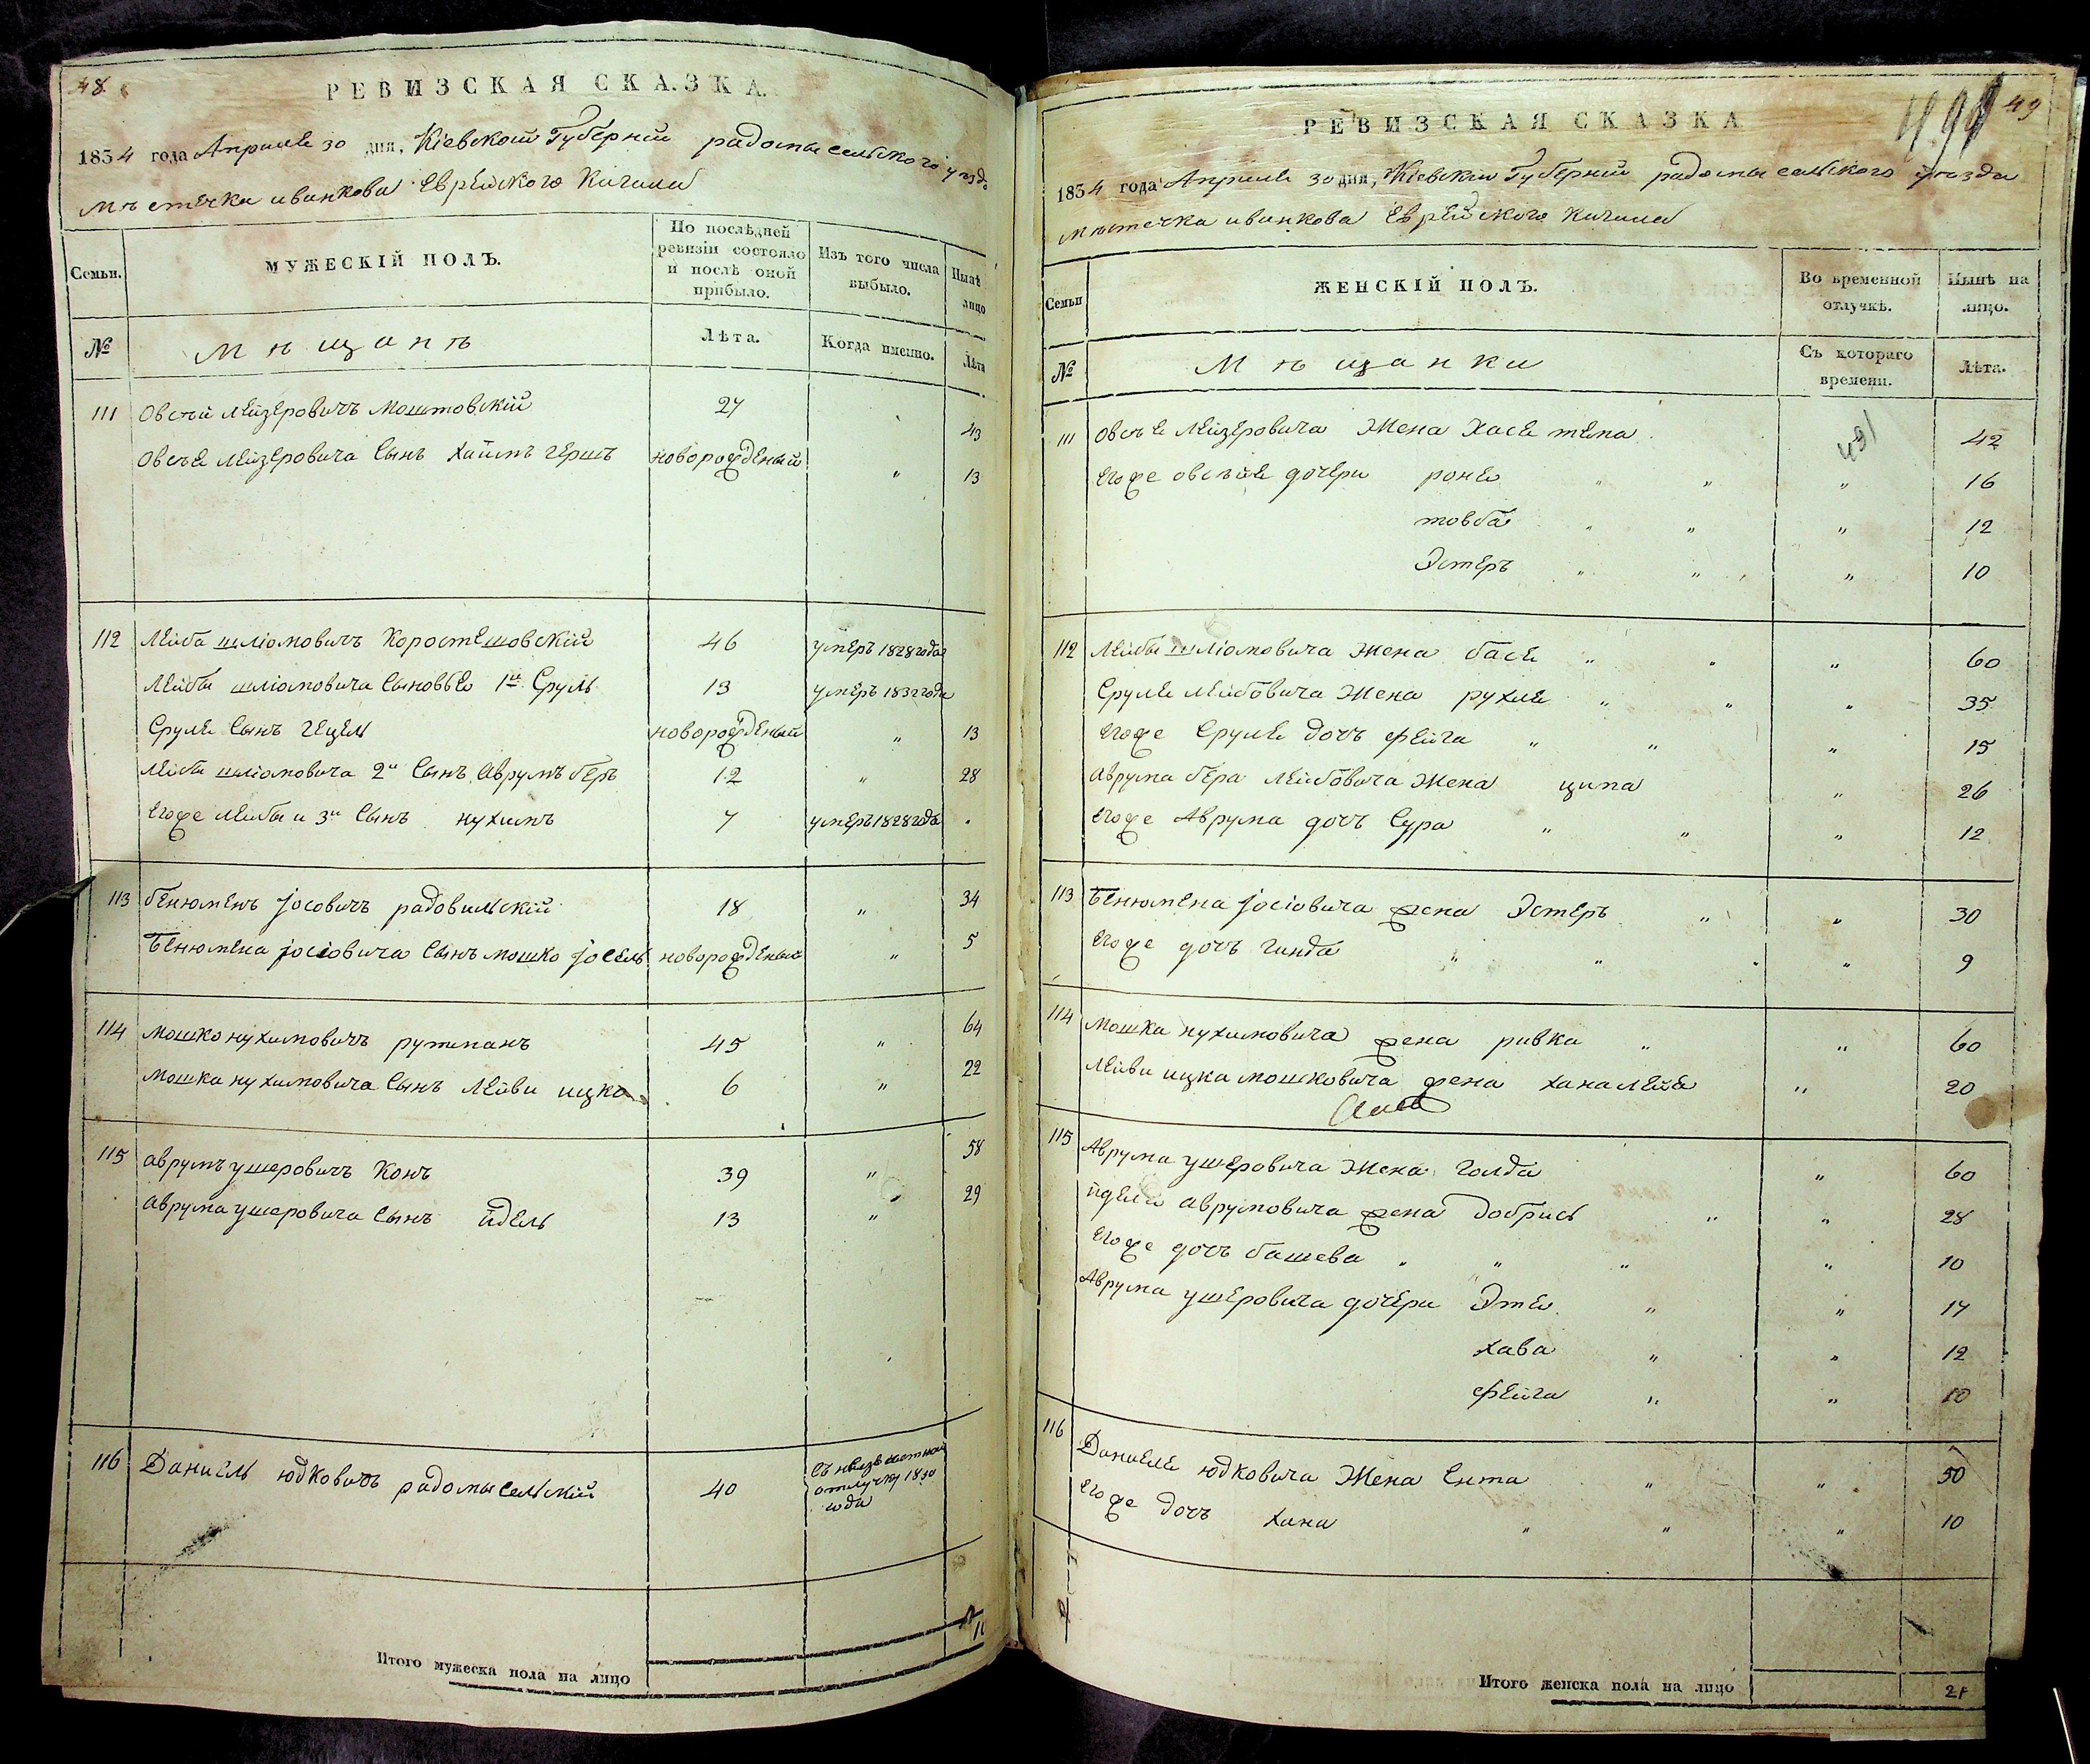 48.
РЕВИЗСКАЯ СКАЗКА.
1834 года Апреля 30 дня, Кіевской Губерніи радомысельского уезда
мъстечка иванкова Еврейского Кагала
Семьи.
МУЖЕСКІЙ ПОЛЪ.
По послѣдней ревизіи состояло и послѣ оной прибыло.
Изъ того числа выбыло.
Нынѣ лицо
№
Мъщанъ
Лѣта.
Когда именно.
Лѣта
111 Овсѣй Лейзеровичъ Моштовскій 27 43
Овсѣя Лейзеровича Сынъ Хаимъ Гершъ новорожденый " 13
112 Лейба шліомовичъ Коростешовскій 46 умеръ 1828 года
Лейбы шліомовича Сыновья 1й Сруль 13 умеръ 1832 года
Сруля Сынъ Гецель новорожденый " 13
Лейбы шліомовича 2й Сынъ Аврумъ беръ 12 " 28
Егоже Лейбы и 3й Сынъ нухимъ 7 умеръ 1828 года
113 бенюменъ Іосовичъ радовильскій 18 " 34
Бенюмена Іосіовича Сынъ мошко Іосель новорожденый " 5
114 мошко нухимовичъ рутманъ 45 " 64
мошка нухимовича Сынъ Лейви ицко 6 " 22
115 аврумъ ушеровичъ Конъ 39 " 58
аврума ушеровича Сынъ йдель 13 " 29
116 Даниель юдковичъ радомысельскій 40 Съ неизвестной отлучки 1830 года
Итого мужеска пола на лицо 10
49
РЕВИЗСКАЯ СКАЗКА
1834 года Апреля 30 дня, Кіевской Губерніи радомысельского уезда
мъстечка иванкова Еврейского Кагала
Семьи
ЖЕНСКІЙ ПОЛЪ.
Во временной отлучкѣ.
Нынѣ на лицо.
№
Мъщанки
Съ котораго времени.
Лѣта.
491
111 Овсѣя Лейзеровича Жена Хася тема 42
Егоже овсѣя дочери роня " " " 16
товба " " " 12
Эстеръ " " " 10
112 Лейбы шліомовича Жена бася " " " 60
Сруля Лейбовича Жена рухля " " " 35
Егоже Сруля дочь фейга " " " 15
Аврума бера Лейбовича Жена ципа " 26
Егоже Аврума дочъ Сура " " " 12
113 Бенюмена Іосіовича жена Эстеръ " " 30
Егоже дочъ гинда " " " " 9
114 Мошка нухимовича жена ривка " " 60
Лейви ицка мошковича жена хана лея " 20
115 Аврума ушеровича Жена голда " 60
йделя аврумовича жена добрись " " 28
Егоже дочъ башева " " " " 10
Аврума ушеровича дочери Этя " " 17
хава " " 12
фейга " " 10
116 Даниеля юдковича Жена Ента " " 50
Егоже дочъ хана " " " 10
Итого женска пола на лицо 21